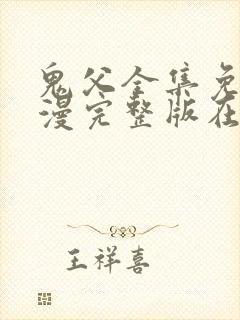 鬼父全集免
漫完整版在
王祥喜